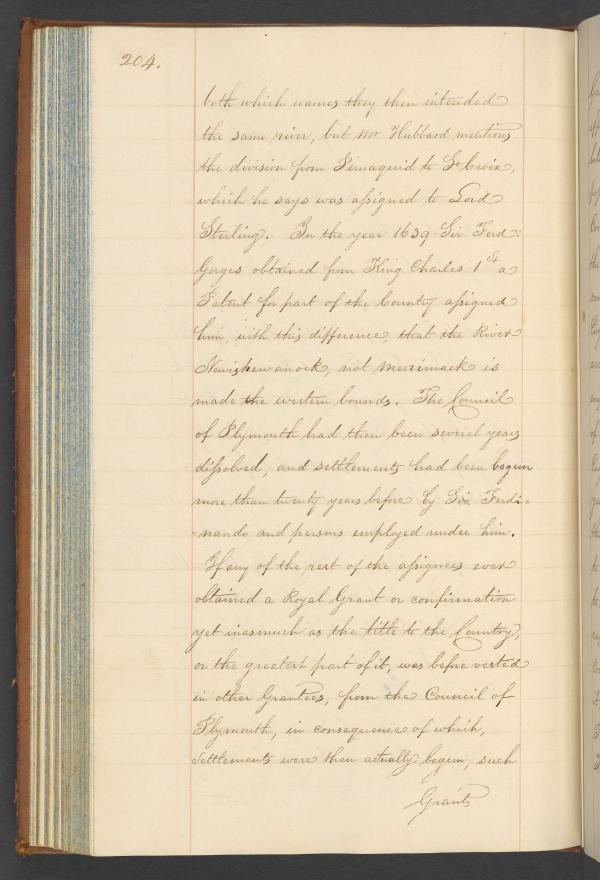 204.
both which names they then intended
the same river, but Mr Hubbard mentions
the division from Pemaquid to St Croix,
which he says was assigned to Lord
Sterling. In the year 1639 Sir Ferd:
Gorges obtained from King Charles 1st a
Patent for part of the County assigned
him, with this difference, that the River
Newishewanock, not Merrimack is
made the western bounds. The Council
of Plymouth had then been several years
dissolved, and settlements had been begun
more than twenty years before by Sir Ferdi=
=nando and persons employed under him.
If any of the rest of the assignees ever
obtained a Royal Grant or confirmation
yet inasmuch as the title to the Country,
or the greatest part of it, was before vested
in other Grantees, from the Council of
Plymouth, in consequence of which,
Settlements were then actually begun, such
Grants